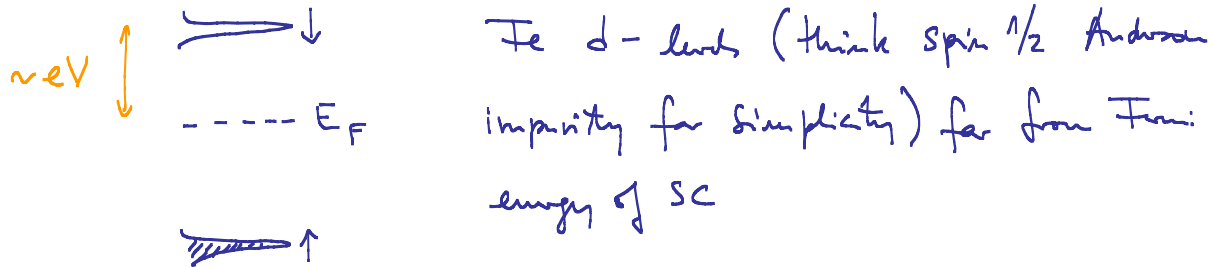 Fe d-levels (think spin 1/2 Anderson
~eV
E_F impurity for simplicity) far from Fermi
energy of SC